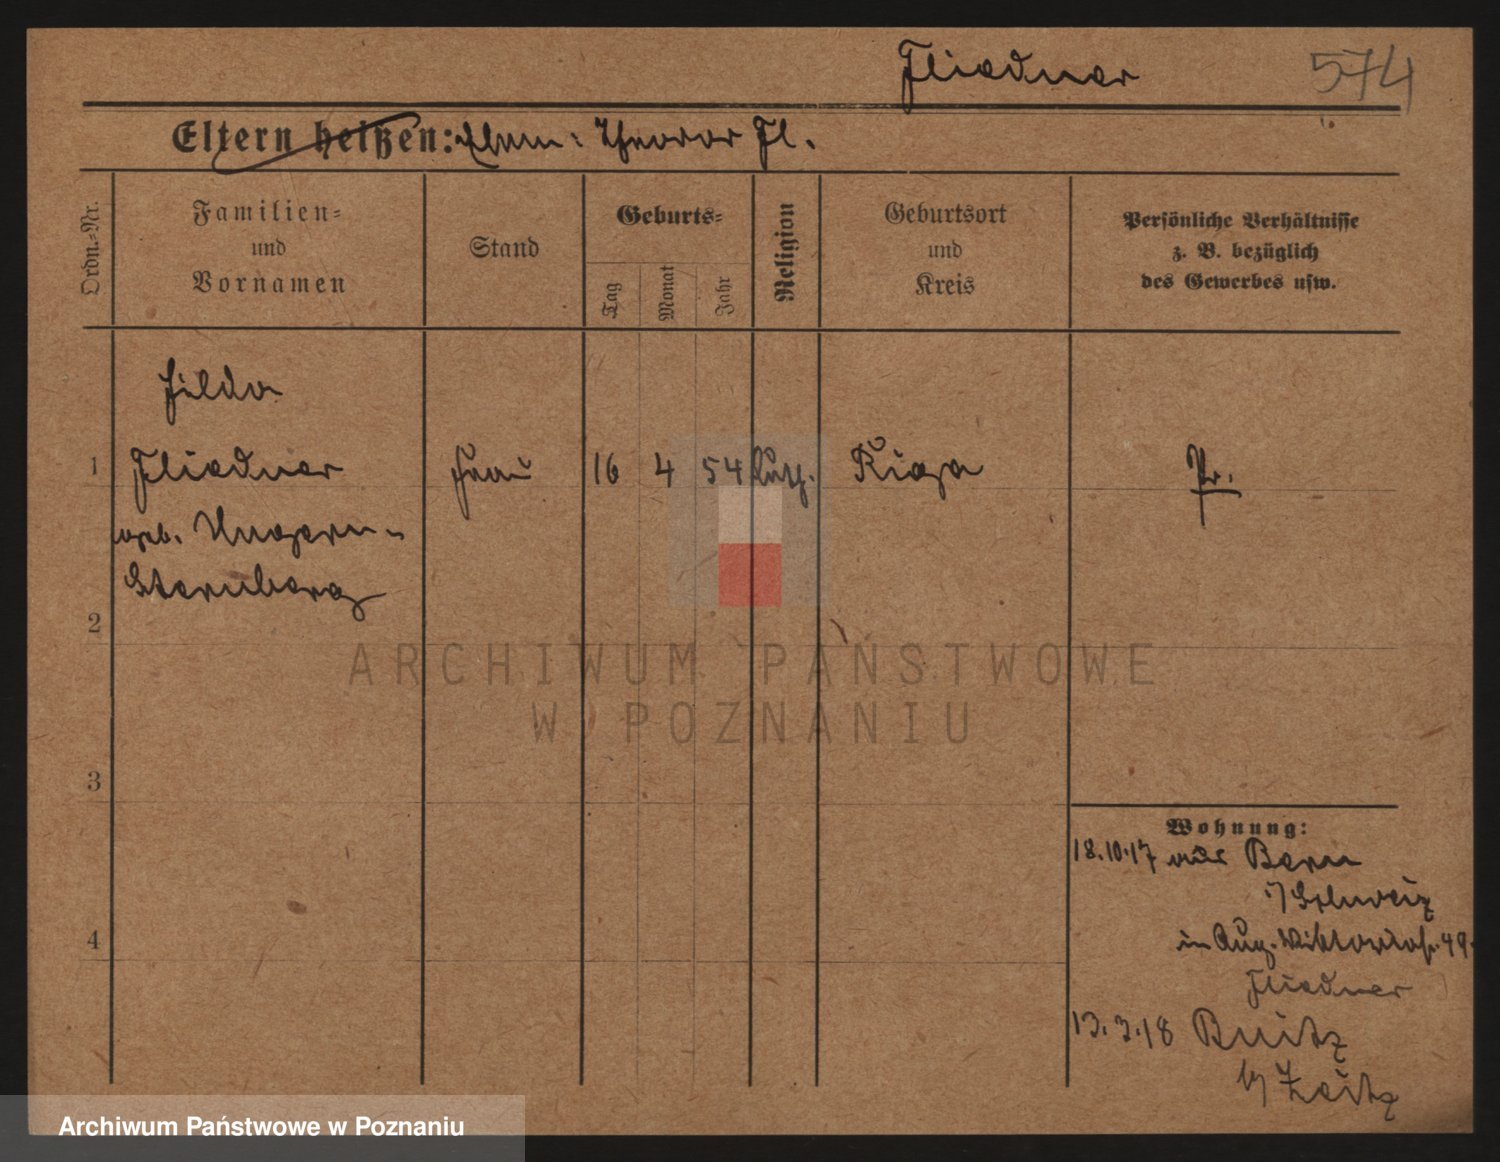 Fliedner
574
Eltern heißen: Ehem: Theodor Fl.
Ordn.-Nr.
Familien-
und
Vornamen
Stand
Geburts-
Tag
Monat
Jahr
Religion
Geburtsort
und
Kreis
Persönliche Verhältnisse
z. B. bezüglich
des Gewerbes usw.
Hilda
1 Fliedner Frau 16 4 54 luth. Riga Pr.
geb. Ungern-
Sternberg
2
ARCHIWUM PAŃSTWOWE
W POZNANIU
3
Wohnung:
18.10.17 aus Bern
i/Schweiz
in Aug. Viktoriastr. 49.
Fliedner
4
13.3.18
b/ Zeitz
Archiwum Państwowe w Poznaniu